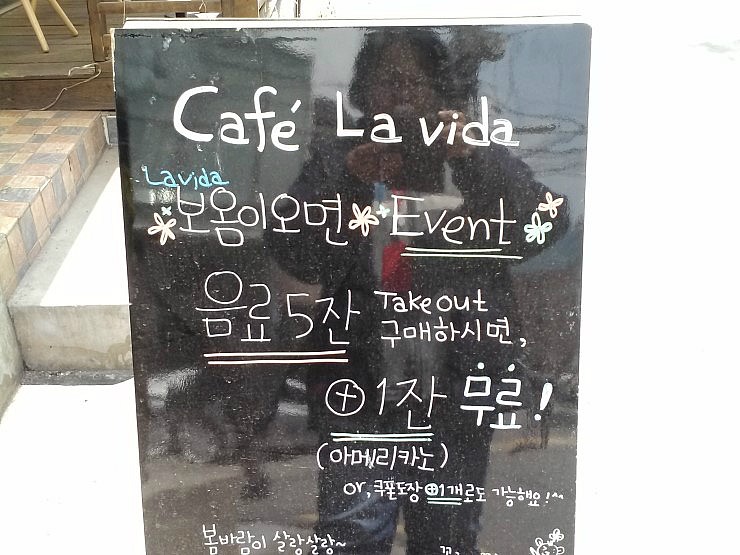 Café La vida
La vida
보옴이오면 Event
음료 5잔 Take out
구매하시면,
+1잔 무료!
(아메리카노)
or, 쿠폰도장 +1개로도 가능해요!^^
봄바람이 살랑살랑~